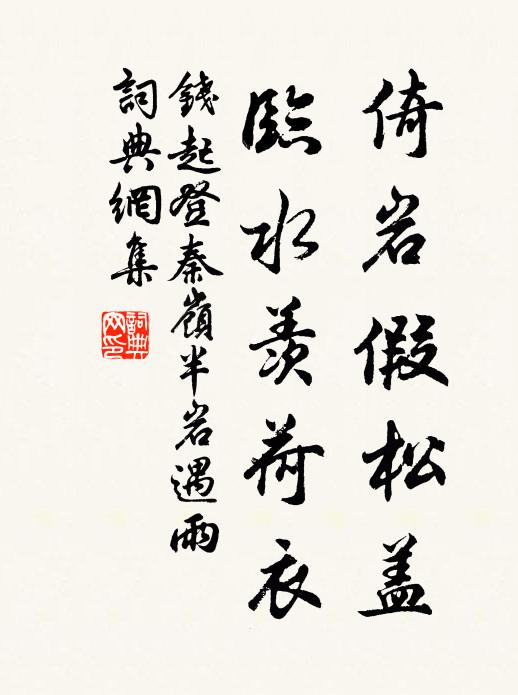 倚岩假松盖
臨水羡荷衣
錢起登秦嶺半岩遇雨
詞典網集
詞典網印